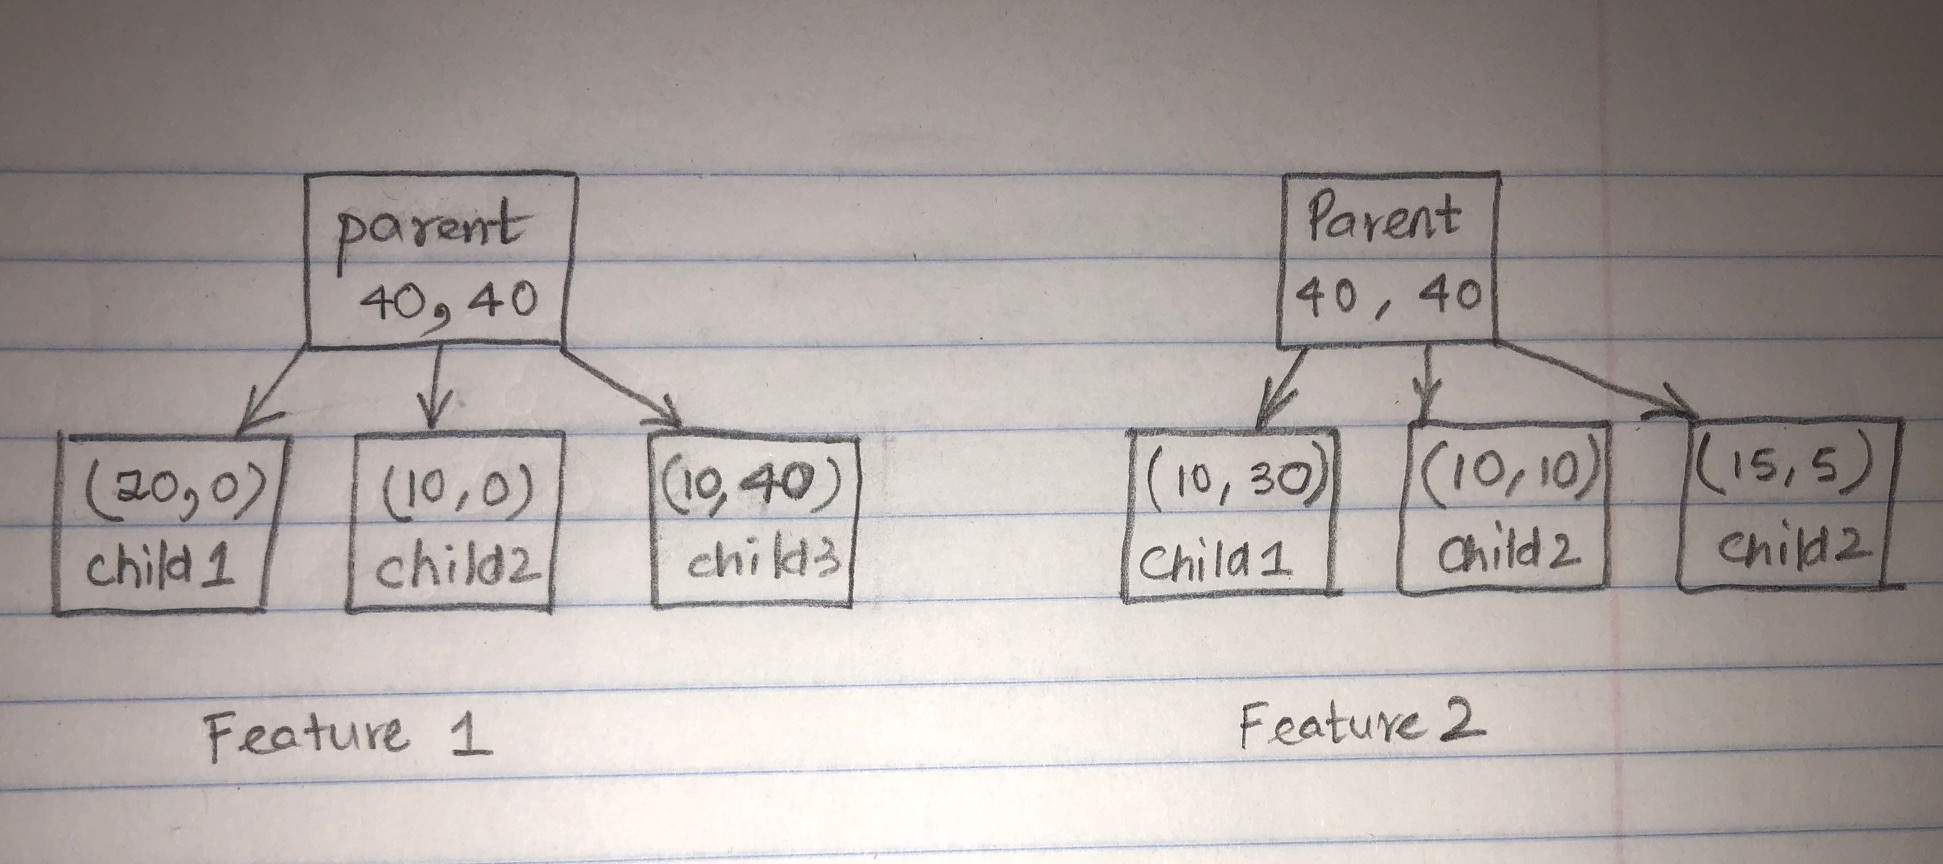 parent
40, 40
(20,0)
child 1
(10,0)
child2
(10,40)
child3
Feature 1
Parent
40, 40
(10, 30)
Child 1
(10,10)
Child 2
(15,5)
Child 2
Feature 2